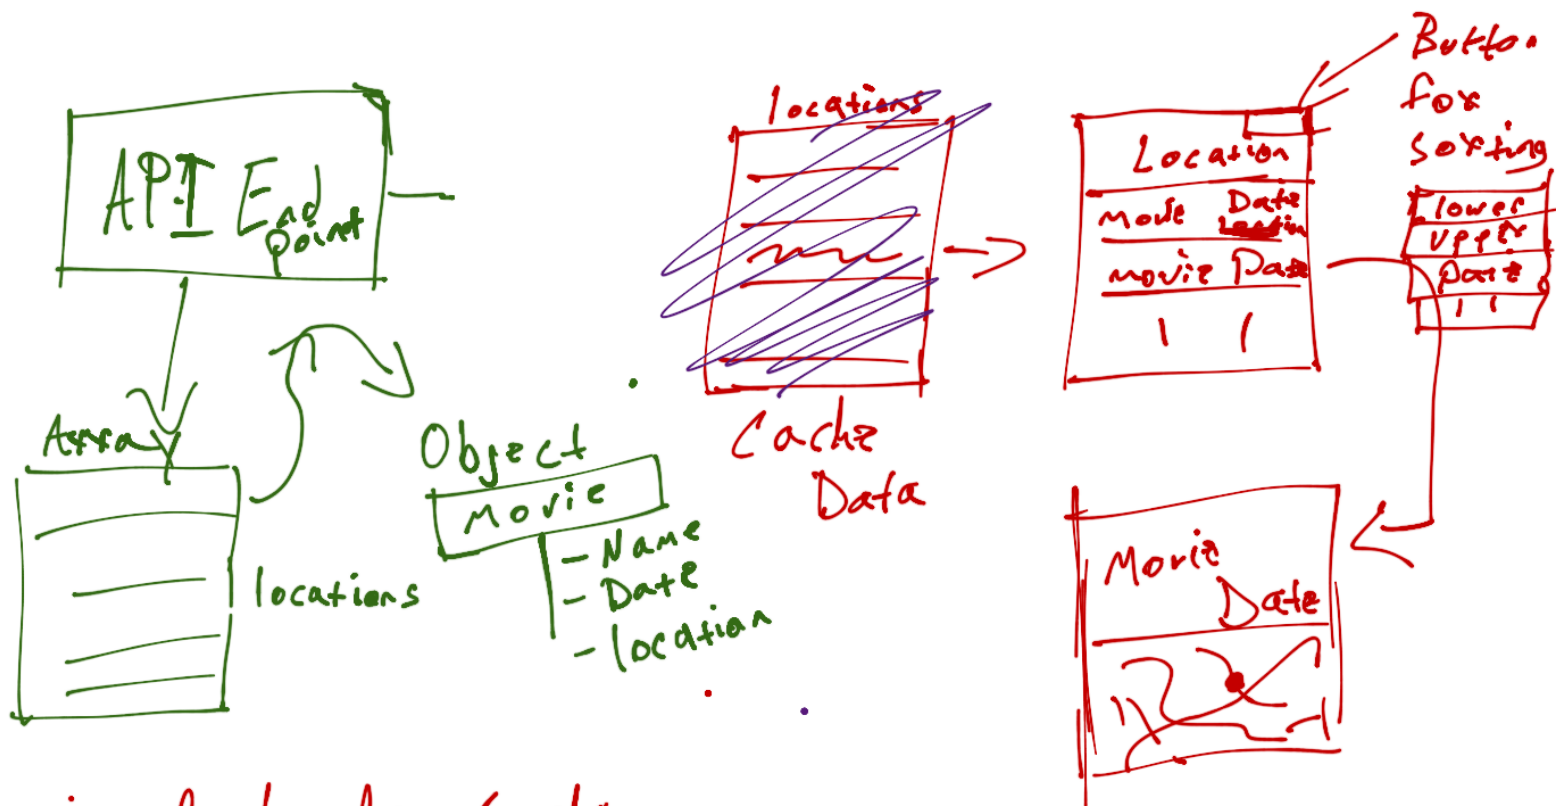 API End
Point
Array
locations
Object
Movie
- Name
- Date
- location
locations
Cache
Data
Button
for
sorting
Location
Movie Date
Location
Movie Date
lower
upper
Date
Movie
Date